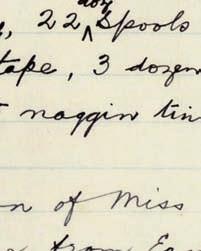 22 doz spools
tape, 3 dozen
noggin tin
of Miss
from